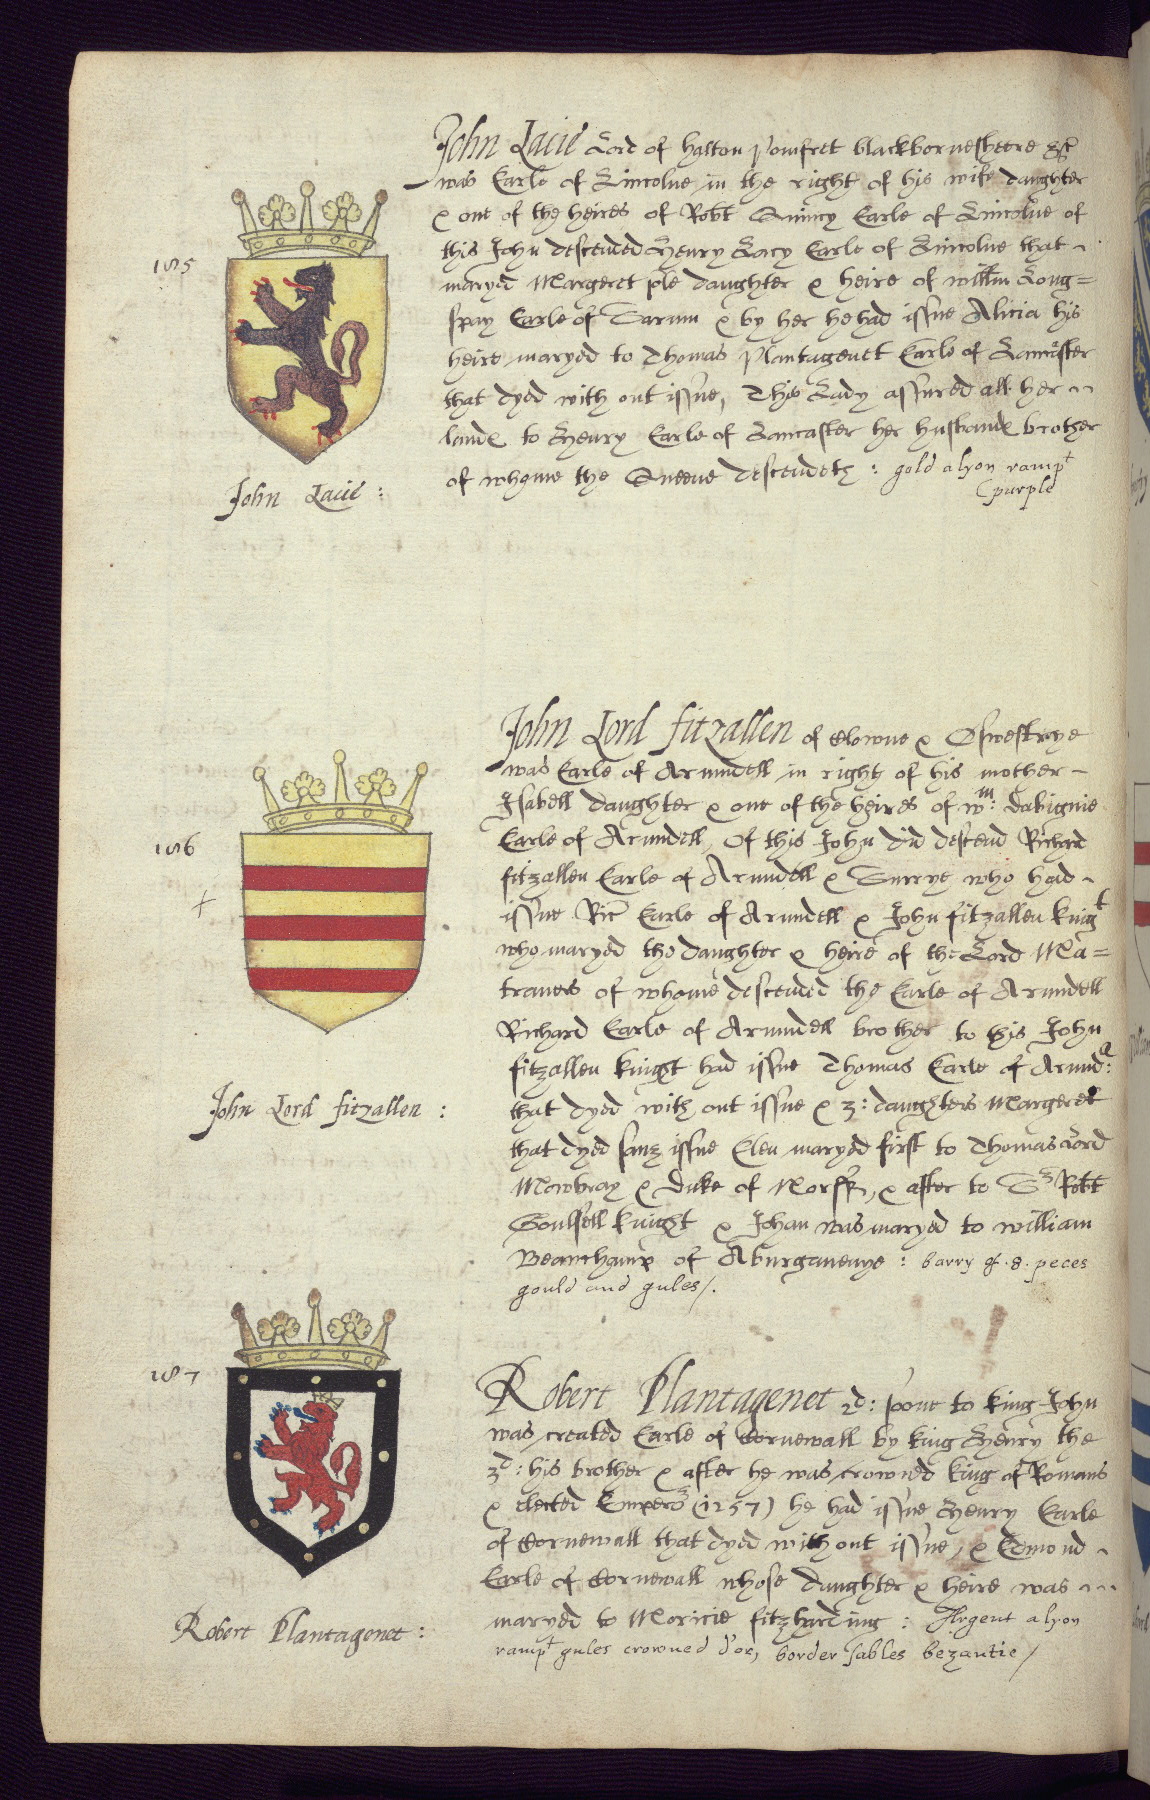 185
John Lacie Lord of halton Pomfret blackborneshere &c
was Earle of Lincolne in the right of his wife daughter
& one of the heires of Robt Quincy Earle of Lincolne of
this John descended Henry Lacy Earle of Lincolne that
maryed Margeret ple daughter & heire of willm Long=
spay Earle of Sarum & by her he had issue Alicia his
heire maryed to Thomas Plantagenet Earle of Lancaster
that dyed with out issue, This Lady assured all her
landes to Henry Earle of Lancaster her husbandes brother
of whome the Queene descendeth : gold a lyon rampt
(purple
John Lacie :
186
John Lord fitzallen of Clowne & Oswestrye
was Earle of Arundell in right of his mother
Isabell daughter & one of the heires of wm: dabignie
Earle of Arundell, Of this John did descend Richard
fitzallen Earle of Arundell & Surrye who had
issue Ric Earle of Arundell & John fitzallen knigt
who maryed the daughter & heire of the Lord Ma=
travers of whome descended the Earle of Arundell
Richard Earle of Arundell brother to this John
fitzallen knight had issue Thomas Earle of Arund:
that dyed with out issue & 3: daughters Margeret
that dyed sanz issue Elen maryed first to Thomas Lord
Mowbray & Duke of Norff, & after to Sr Robt
Goulsell knight & Johan was maryed to william
Beauchamp of Aburgavenye : barry of .8. peces
gould and gules/.
John Lord fitzallen :
187
Robert Plantagenet 2d: sone to king John
was created Earle of Cornewall by king Henry the
3d: his brother & after he was crowned king of Romans
& elected Emperor (1257) he had issue Henry Earle
of Cornewall that dyed without issue, & Edmond
Earle of Cornewall whose daughter & heire was
maryed to Moricie fitzharding : Argent a lyon
rampt gules crowned d'or, border sables bezantie/
Robert Plantagenet :